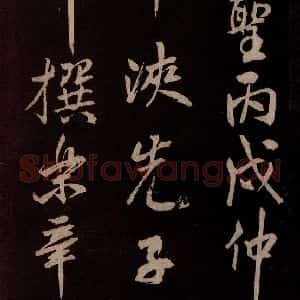 聖丙戌仲
浹先子
撰樂章
Shufawang.cn